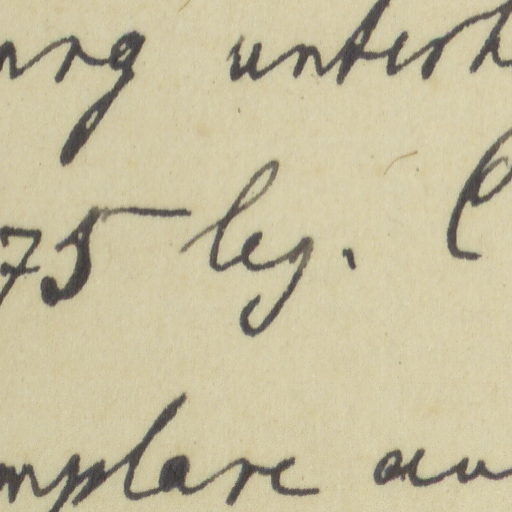 unterh
75 leg. C
mplare au